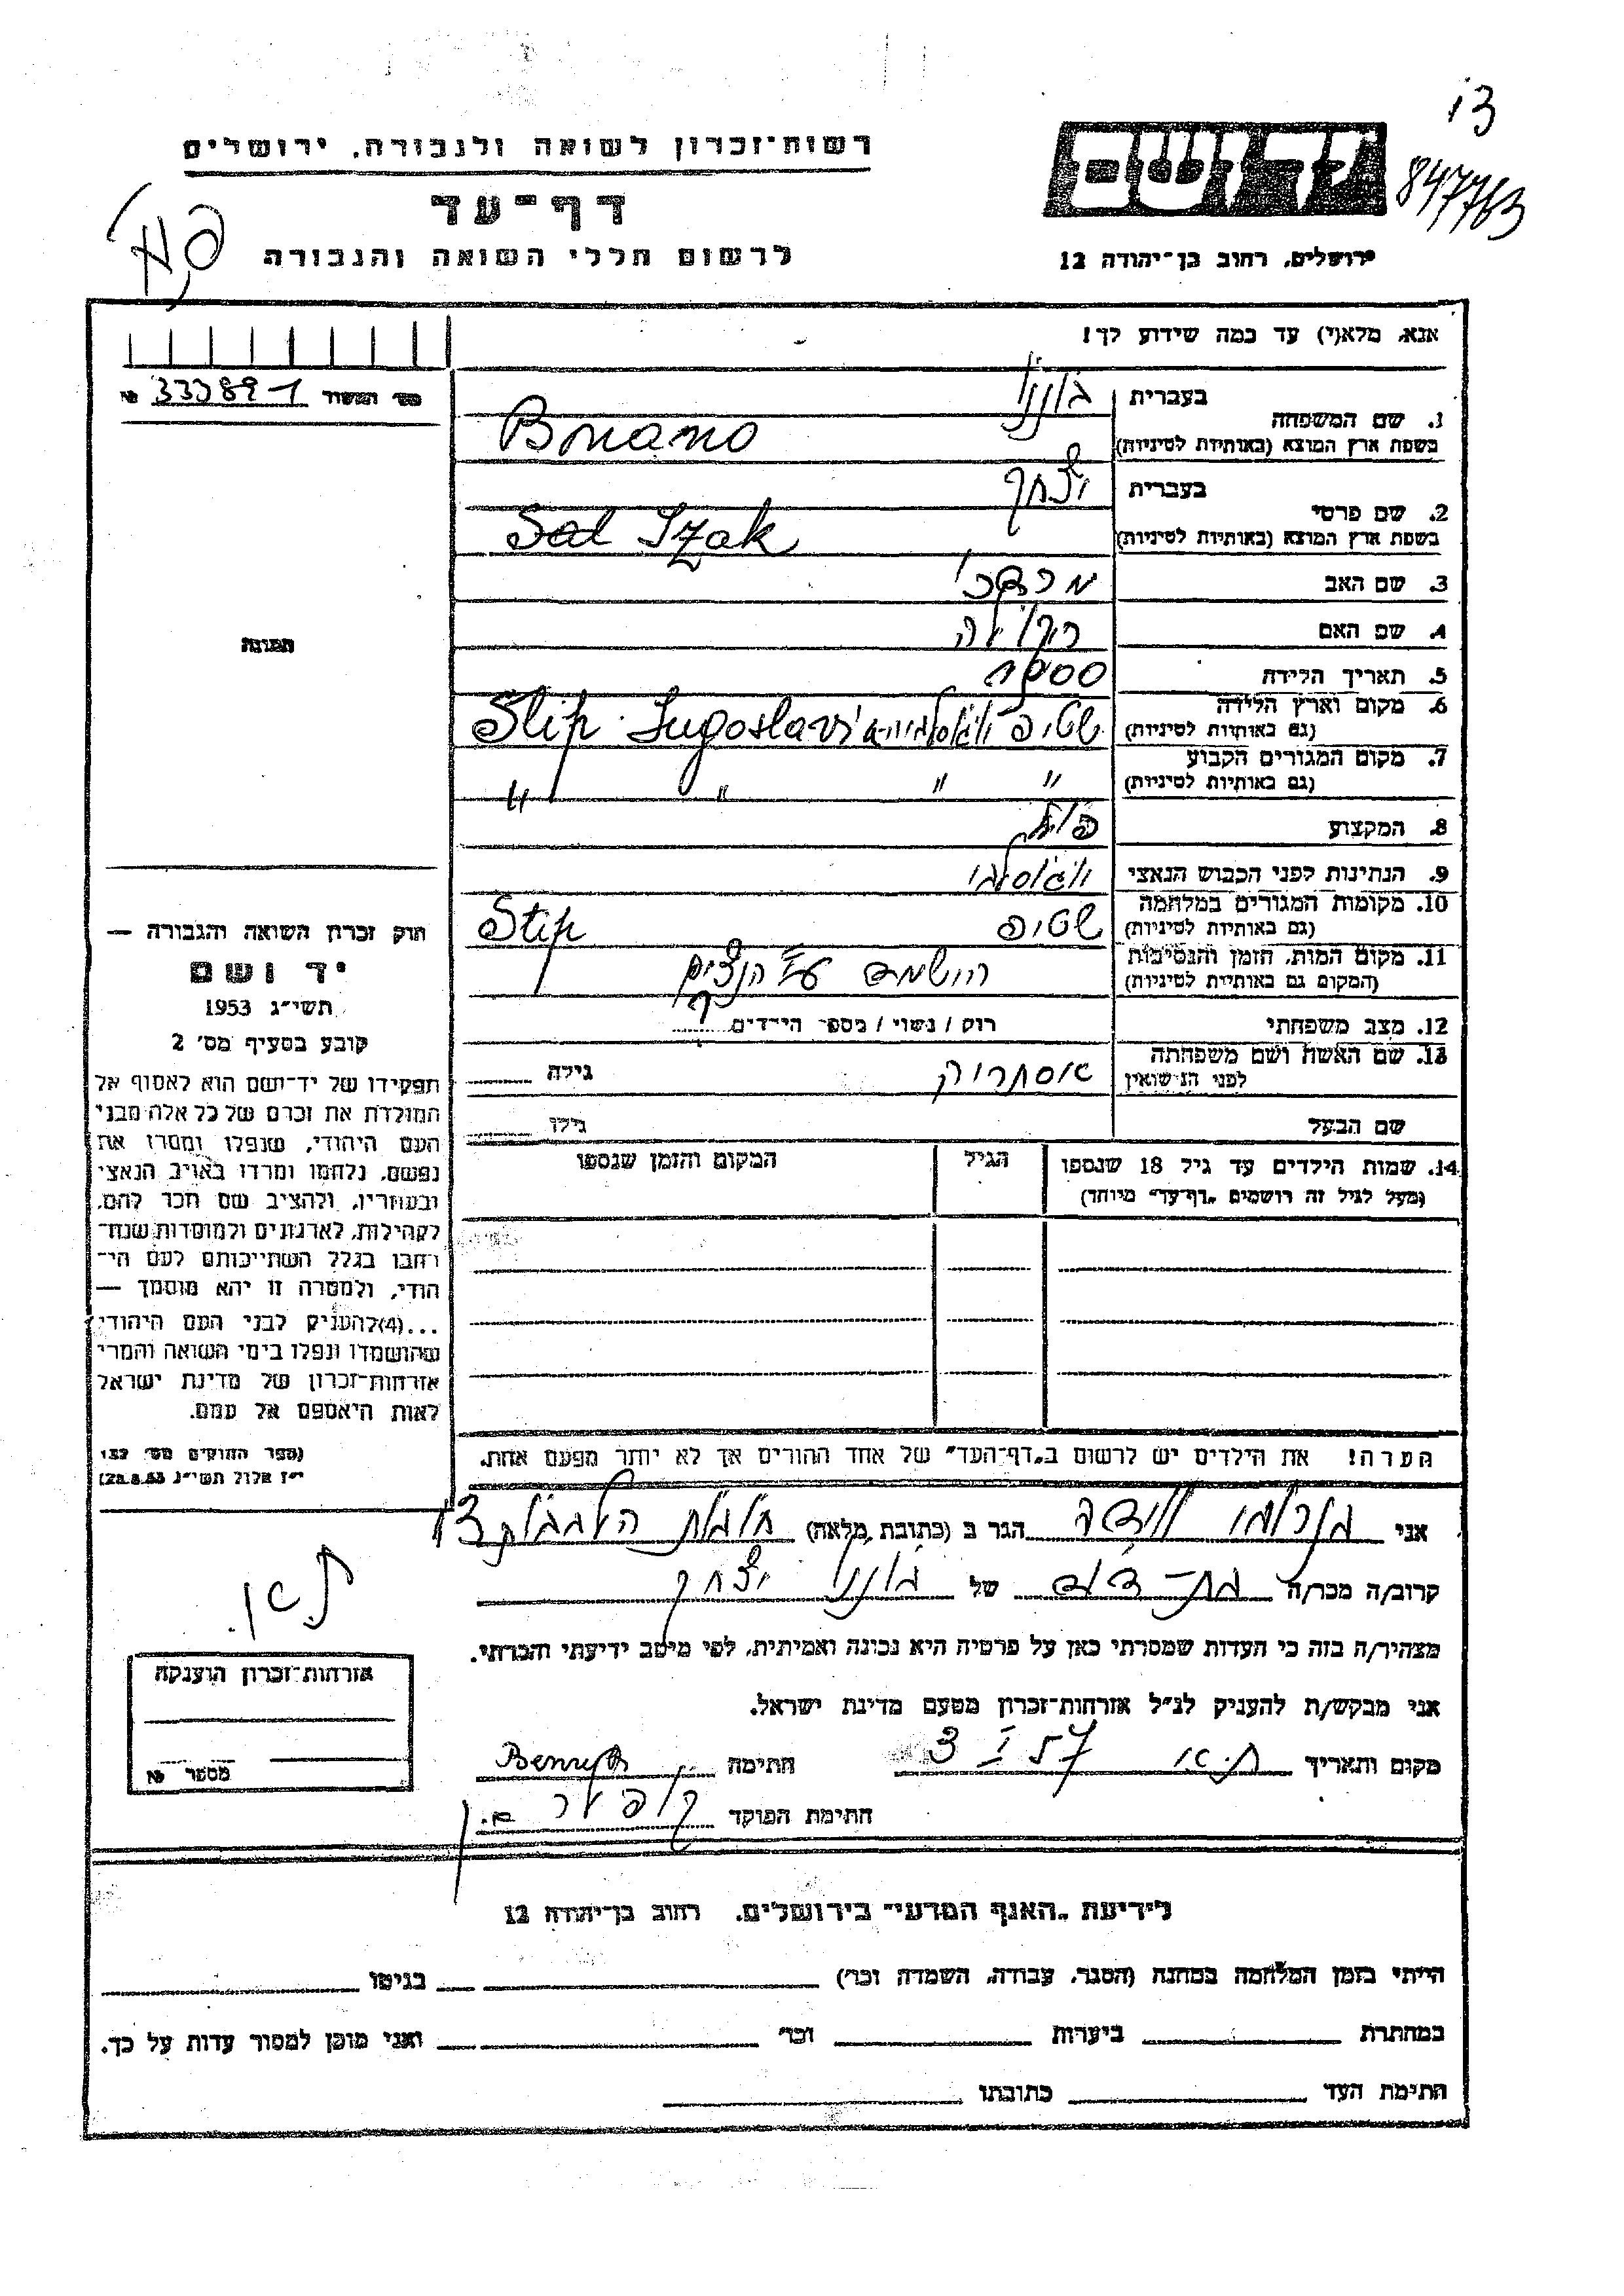 13
847763
יד ושם
רשות-זכרון לשואה ולגבורה, ירושלים
דף-עד
לרשום חללי השואה והגבורה
ירושלים, רחוב בן-יהודה 12
אנא, מלא(י) עד כמה שידוע לך!
מס' המשור № 33389-1
תמונה
1. שם המשפחה
בעברית בוננו
בשפת ארץ המוצא (באותיות לטיניות) Bonano
2. שם פרטי
בעברית יצחק
בשפת ארץ המוצא (באותיות לטיניות) Sal Izak
3. שם האב מרדכי
4. שם האם
5. תאריך הלידה 1900
6. מקום וארץ הלידה
(גם באותיות לטיניות) שטיפ יוגוסלביה Stip Jugoslavi
7. מקום המגורים הקבוע
(גם באותיות לטיניות) " " " "
8. המקצוע פועל
9. הנתינות לפני הכבוש הנאצי יוגוסלבי
10. מקומות המגורים במלחמה
(גם באותיות לטיניות) שטיפ Stip
11. מקום המות, הזמן והנסיבות
(המקום גם באותיות לטיניות) הושמד ע"י הנצים
12. מצב משפחתי רוק / נשוי / מספר הילדים
13. שם האשה ושם משפחתה
לפני הנישואין גילה
שם הבעל גילו
14. שמות הילדים עד גיל 18 שנספו הגיל המקום והזמן שנספו
(מעל לגיל זה רושמים „דף-עד" מיוחד)
הערה! את הילדים יש לרשום ב„דף-העד" של אחד ההורים אך לא יותר מפעם אחת.
חוק זכרון השואה והגבורה —
יד ושם
תשי"ג 1953
קובע בסעיף מס' 2
תפקידו של יד-ושם הוא לאסוף אל
המולדת את זכרם של כל אלה מבני
העם היהודי, שנפלו ומסרו את
נפשם, נלחמו ומרדו באויב הנאצי
ובעוזריו, ולהציב שם וזכר להם,
לקהילות, לארגונים ולמוסדות שנח-
רבו בגלל השתייכותם לעם הי-
הודי, ולמטרה זו יהא מוסמך —
...(4)להעניק לבני העם היהודי
שהושמדו ונפלו בימי השואה והמרי
אזרחות-זכרון של מדינת ישראל
לאות היאספם אל עמם.
(ספר החוקים מס' 132
י"ז אלול תשי"ג 28.8.53)
אני הגר ב (כתובת מלאה)
קרוב/ה מכר/ה בת-דוד של בוננו יצחק
מצהיר/ה בזה כי העדות שמסרתי כאן על פרטיה היא נכונה ואמיתית, לפי מיטב ידיעתי והכרתי.
אני מבקש/ת להעניק לנ"ל אזרחות-זכרון מטעם מדינת ישראל.
מקום ותאריך חתימה
חתימת הפוקד
אזרחות-זכרון הוענקה
מספר №
לידיעת „האגף המדעי" בירושלים, רחוב בן-יהודה 12
הייתי בזמן המלחמה במחנה (הסגר, עבודה, השמדה וכר') בגיטו
במחתרת ביערות וכר' ואני מוכן למסור עדות על כך.
חתימת העד כתובתו